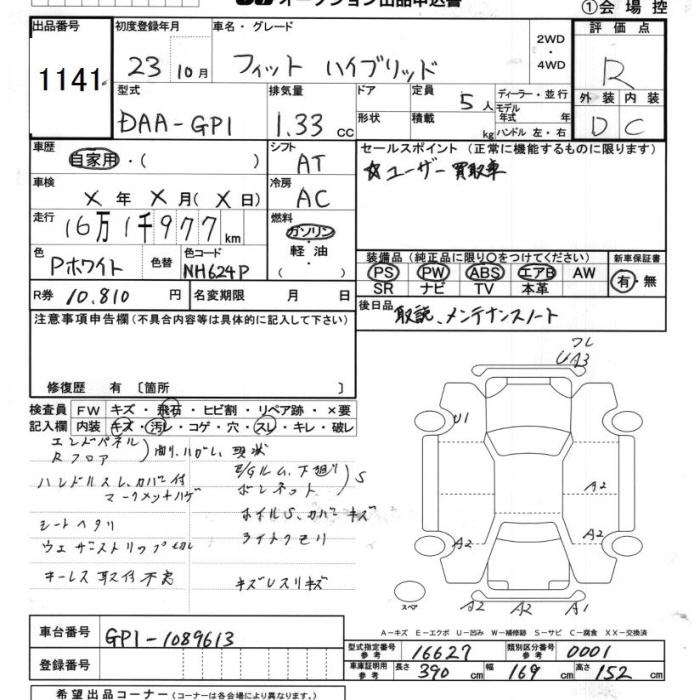 オークション出品申込書
①会場控
出品番号
1141
初度登録年月
23 10月
車名・グレード
フィット ハイブリッド
2WD
・
4WD
評価点
R
外装 内装
D C
型式
DAA-GP1
排気量
1.33 cc
ドア
形状
定員
5人
積載
kg
ディーラー・並行
モデル年式 年
ハンドル 左・右
車歴
自家用・( )
シフト
AT
車検
X年X月(X日)
冷房
AC
走行
16万1千977km
燃料
ガソリン・
軽油・
( )
色
Pホワイト
色替
色コード
NH624P
R券 10,810円
名変期限 月 日
セールスポイント (正常に機能するものに限ります)
☆ユーザー買取車
装備品(純正品に限り○をつけてください)
PS PW ABS エアB AW
SR ナビ TV 本革
新車保証書
有・無
後日品
取説、メンテナンスノート
注意事項申告欄(不具合内容等は具体的に記入して下さい)
修復歴 有 〔箇所 〕
検査員記入欄
FW キズ・飛石・ヒビ割・リペア跡・×要
内装 キズ・汚レ・コゲ・穴・スレ・キレ・破レ
エンドパネル
Rフロア
現状
ハンドルスレ、カバー付
シートヘタリ
ウェザーストリップ切レ
キーレス取付不良
ボンネット
S
ホイルS、カバーキズ
ライトクモリ
フレ
UA3
U1
A2
A2
A2
A2
A2
A1
スペア
A−キズ E−エクボ U−凹み W−補修跡 S−サビ C−腐食 XX−交換済
車台番号
GP1-1089613
登録番号
型式指定番号
参考
16627
類別区分番号
参考
0001
車庫証明用
参考
長さ 390cm
幅 169cm
高さ 152cm
希望出品コーナー(コーナーは各会場により異なります。)